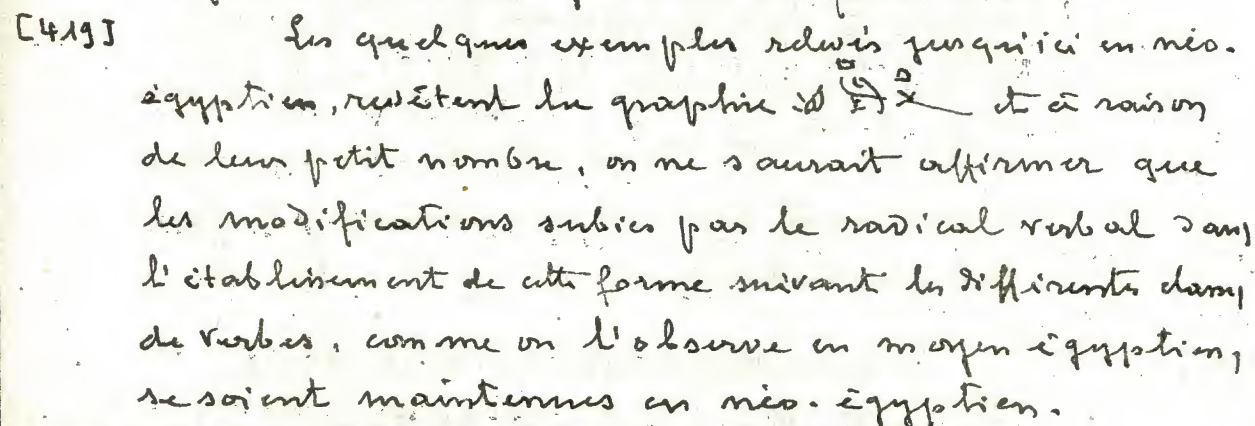 [419] Les quelques exemples relevés jusqu'ici en néo-
égyptien, revêtent la graphie et à raison
de leur petit nombre, on ne saurait affirmer que
les modifications subies par le radical verbal dans
l'établissement de cette forme suivant les différentes classes
de verbes, comme on l'observe en moyen égyptien,
se soient maintenues en néo-égyptien.